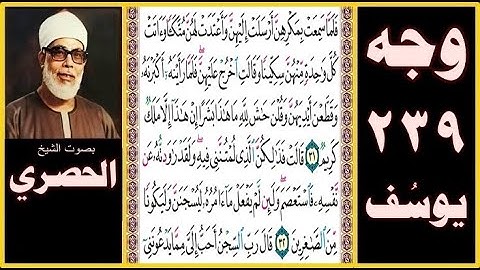 وجه
٢٣٩
يوسُف
فَلَمَّا سَمِعَتْ بِمَكْرِهِنَّ أَرْسَلَتْ إِلَيْهِنَّ وَأَعْتَدَتْ لَهُنَّ مُتَّكَـًٔا وَءَاتَتْ
كُلَّ وَٰحِدَةٍ مِّنْهُنَّ سِكِّينًا وَقَالَتِ ٱخْرُجْ عَلَيْهِنَّ ۖ فَلَمَّا رَأَيْنَهُۥٓ أَكْبَرْنَهُۥ
وَقَطَّعْنَ أَيْدِيَهُنَّ وَقُلْنَ حَٰشَ لِلَّهِ مَا هَٰذَا بَشَرًا إِنْ هَٰذَآ إِلَّا مَلَكٌ
كَرِيمٌ ٣١ قَالَتْ فَذَٰلِكُنَّ ٱلَّذِى لُمْتُنَّنِى فِيهِ ۖ وَلَقَدْ رَٰوَدتُّهُۥ عَن
نَّفْسِهِۦ فَٱسْتَعْصَمَ ۖ وَلَئِن لَّمْ يَفْعَلْ مَآ ءَامُرُهُۥ لَيُسْجَنَنَّ وَلَيَكُونًا
مِّنَ ٱلصَّٰغِرِينَ ٣٢ قَالَ رَبِّ ٱلسِّجْنُ أَحَبُّ إِلَىَّ مِمَّا يَدْعُونَنِىٓ
بصوت الشيخ
الحصري